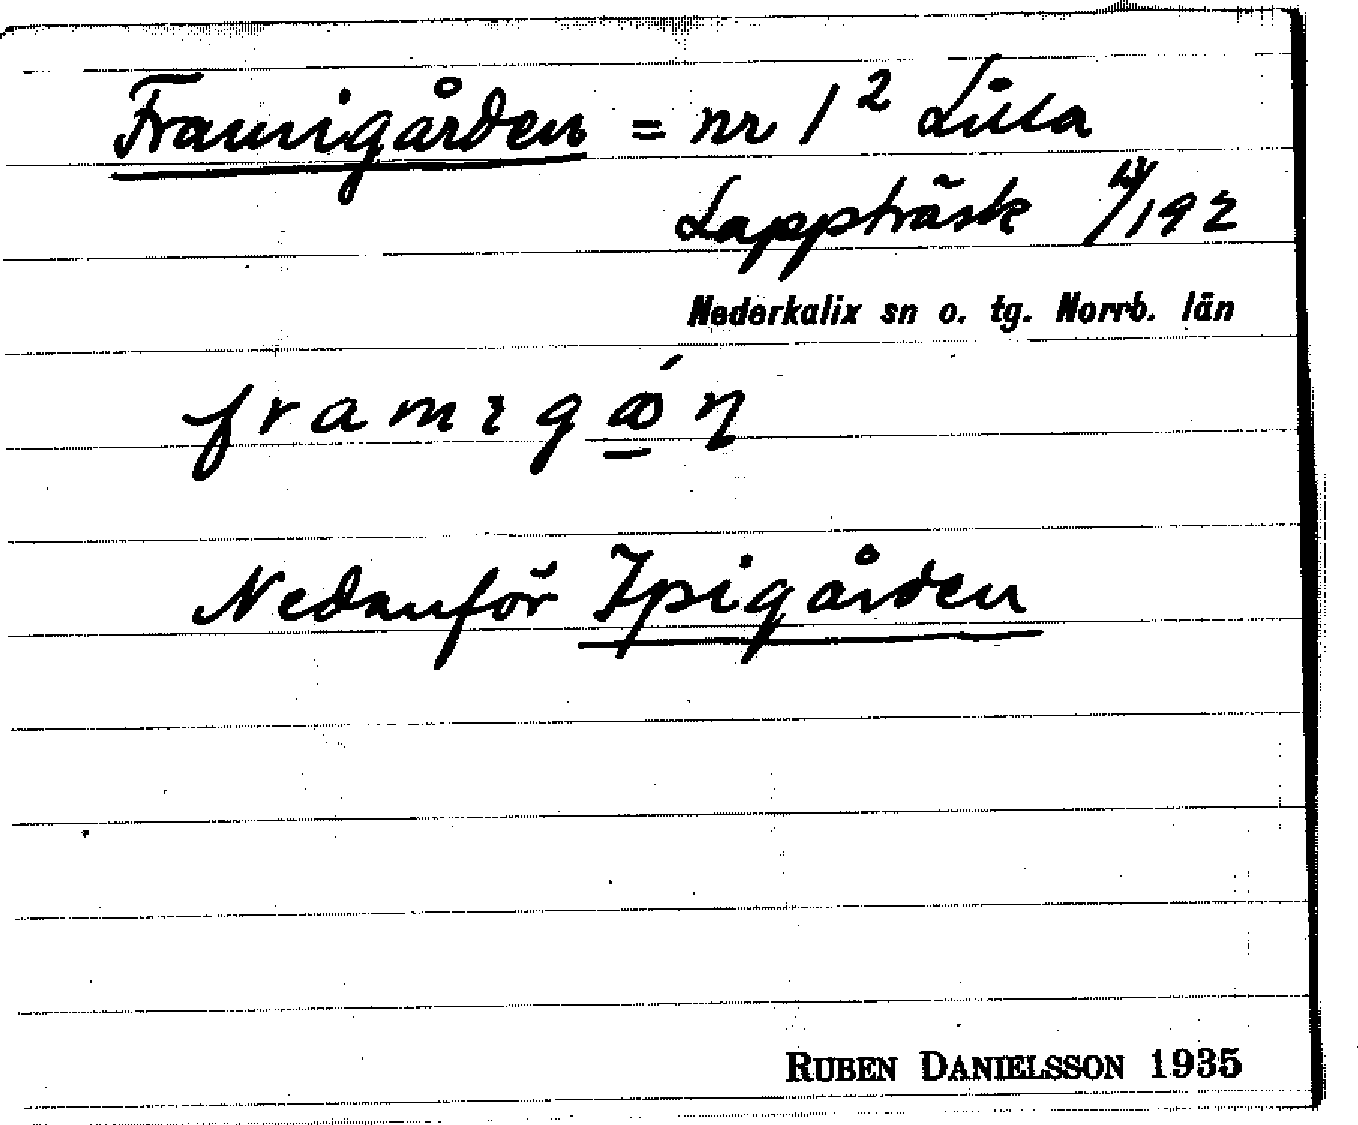 Framigården = nr 1² Lilla
Lappträsk 4/192
Nederkalix sn o. tg. Norrb. län
framıgǫ́n
Nedanför Ipigården
RUBEN DANIELSSON 1935